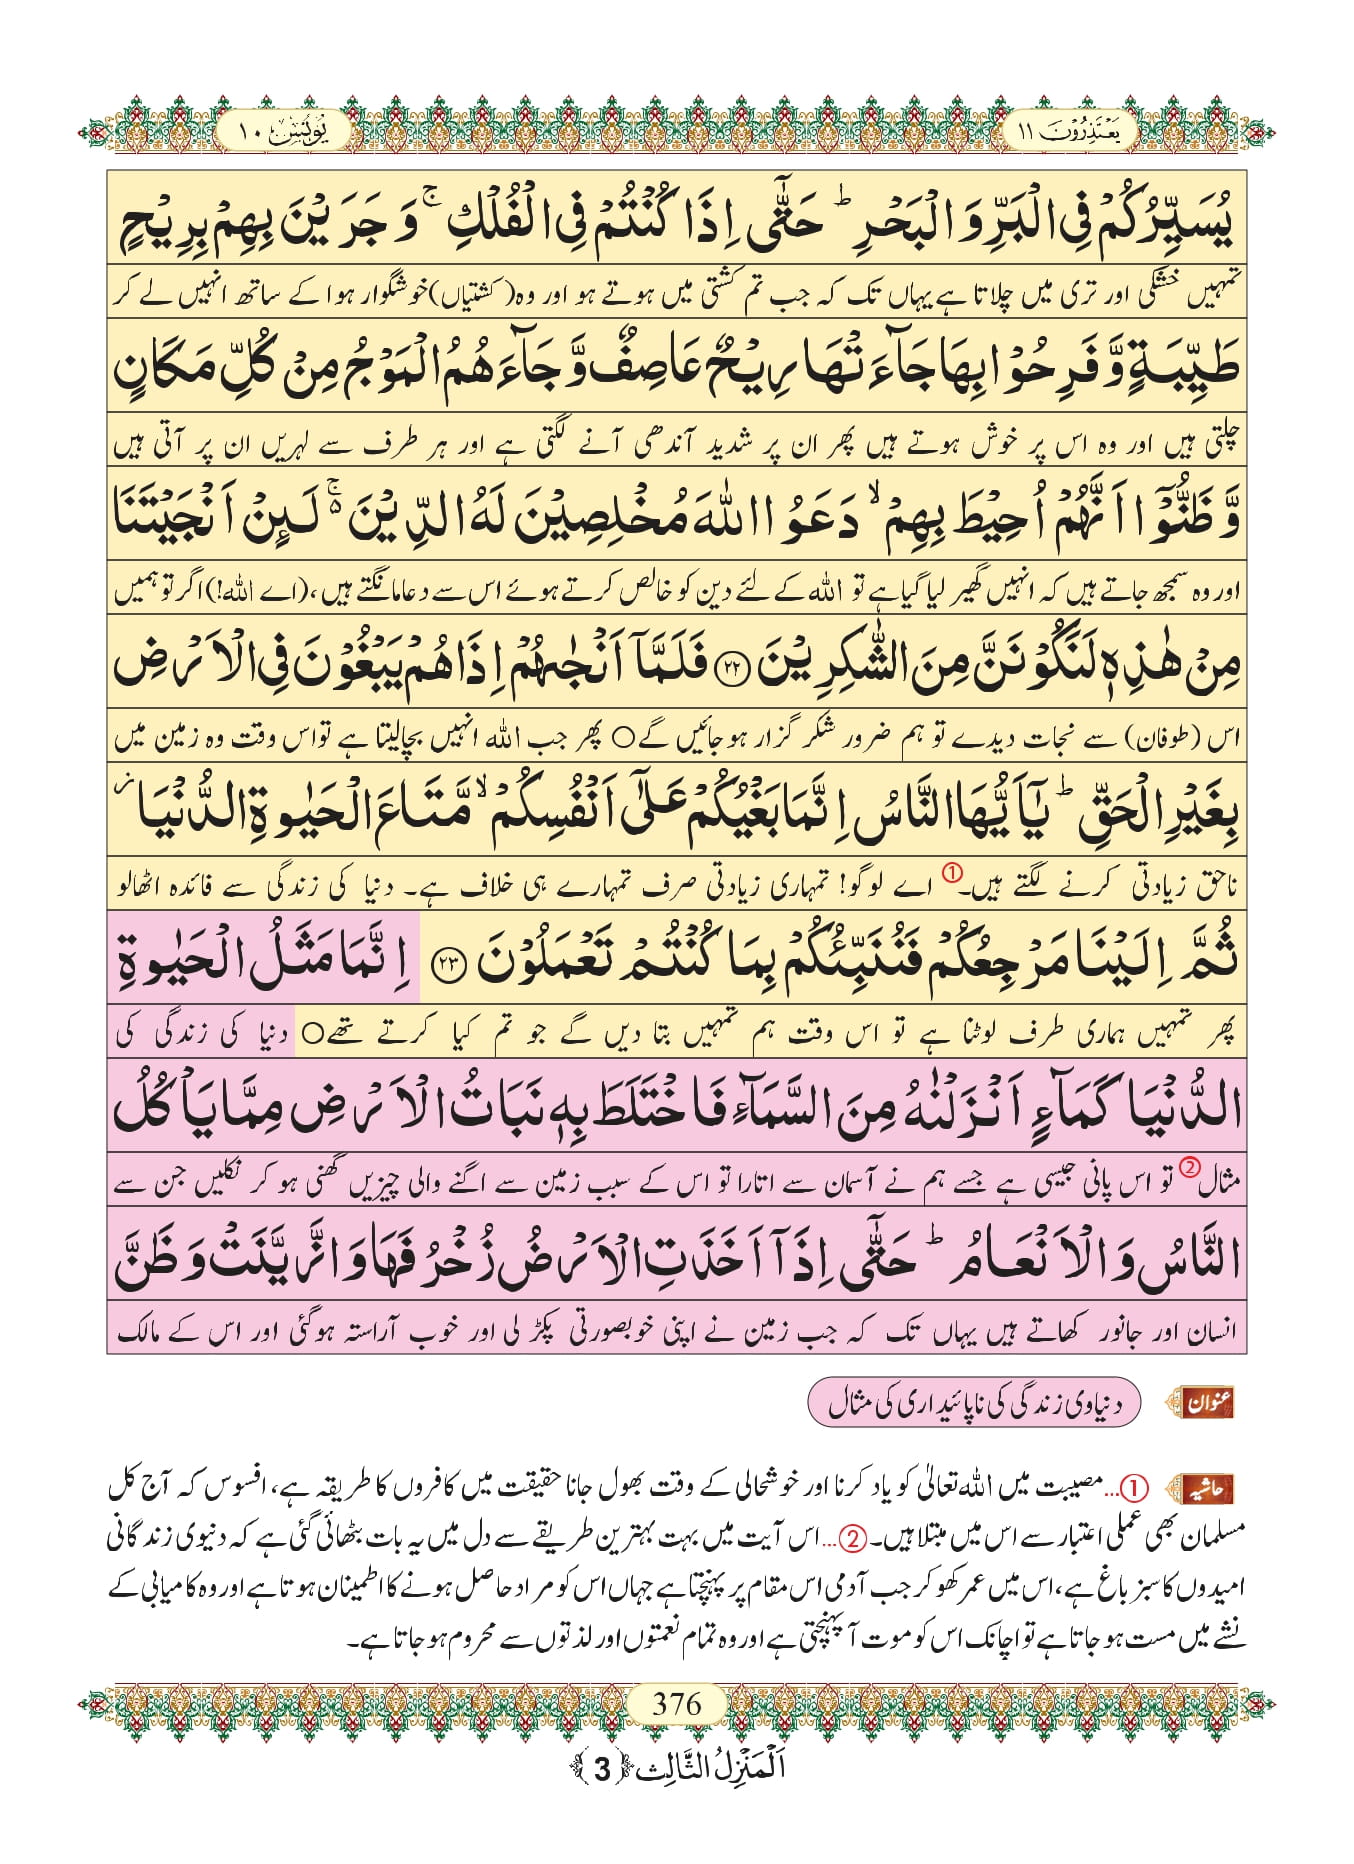 یَعْتَذِرُوْنَ ۱۱
یُوْنُس ۱۰
یُسَیِّرُكُمْ فِی الْبَرِّ وَ الْبَحْرِؕ حَتّٰۤی اِذَا كُنْتُمْ فِی الْفُلْكِۚ وَ جَرَیْنَ بِهِمْ بِرِیْحٍ
تمہیں خشکی اور تری میں چلاتا ہے یہاں تک کہ جب تم کشتی میں ہوتے ہو اور وہ (کشتیاں) خوشگوار ہوا کے ساتھ انہیں لے کر
طَیِّبَةٍ وَّ فَرِحُوْا بِهَا جَآءَتْهَا رِیْحٌ عَاصِفٌ وَّ جَآءَهُمُ الْمَوْجُ مِنْ كُلِّ مَكَانٍ
چلتی ہیں اور وہ اس پر خوش ہوتے ہیں پھر ان پر شدید آندھی آنے لگتی ہے اور ہر طرف سے لہریں ان پر آتی ہیں
وَّ ظَنُّوْۤا اَنَّهُمْ اُحِیْطَ بِهِمْۙ دَعَوُا اللّٰهَ مُخْلِصِیْنَ لَهُ الدِّیْنَ ۚ۬ لَىِٕنْ اَنْجَیْتَنَا
اور وہ سمجھ جاتے ہیں کہ انہیں گھیر لیا گیا ہے تو اللہ کے لئے دین کو خالص کرتے ہوئے اس سے دعا مانگتے ہیں، (اے اللہ!) اگر تو ہمیں
مِنْ هٰذِهٖ لَنَكُوْنَنَّ مِنَ الشّٰكِرِیْنَ ﴿۲۲﴾ فَلَمَّاۤ اَنْجٰىهُمْ اِذَا هُمْ یَبْغُوْنَ فِی الْاَرْضِ
اس (طوفان) سے نجات دیدے تو ہم ضرور شکر گزار ہوجائیں گے ○ پھر جب اللہ انہیں بچالیتا ہے تو اس وقت وہ زمین میں
بِغَیْرِ الْحَقِّؕ یٰۤاَیُّهَا النَّاسُ اِنَّمَا بَغْیُكُمْ عَلٰۤی اَنْفُسِكُمْۙ مَّتَاعَ الْحَیٰوةِ الدُّنْیَا٘
ناحق زیادتی کرنے لگتے ہیں۔ ① اے لوگو! تمہاری زیادتی صرف تمہارے ہی خلاف ہے۔ دنیا کی زندگی سے فائدہ اٹھالو
ثُمَّ اِلَیْنَا مَرْجِعُكُمْ فَنُنَبِّئُكُمْ بِمَا كُنْتُمْ تَعْمَلُوْنَ ﴿۲۳﴾ اِنَّمَا مَثَلُ الْحَیٰوةِ
پھر تمہیں ہماری طرف لوٹنا ہے تو اس وقت ہم تمہیں بتا دیں گے جو تم کیا کرتے تھے ○ دنیا کی زندگی کی
الدُّنْیَا كَمَآءٍ اَنْزَلْنٰهُ مِنَ السَّمَآءِ فَاخْتَلَطَ بِهٖ نَبَاتُ الْاَرْضِ مِمَّا یَاْكُلُ
مثال ② تو اس پانی جیسی ہے جسے ہم نے آسمان سے اتارا تو اس کے سبب زمین سے اگنے والی چیزیں گھنی ہو کر نکلیں جن سے
النَّاسُ وَ الْاَنْعَامُؕ حَتّٰۤی اِذَاۤ اَخَذَتِ الْاَرْضُ زُخْرُفَهَا وَ ازَّیَّنَتْ وَ ظَنَّ
انسان اور جانور کھاتے ہیں یہاں تک کہ جب زمین نے اپنی خوبصورتی پکڑ لی اور خوب آراستہ ہوگئی اور اس کے مالک
عنوان دنیاوی زندگی کی ناپائیداری کی مثال
حاشیہ ①...مصیبت میں اللہ تعالیٰ کو یاد کرنا اور خوشحالی کے وقت بھول جانا حقیقت میں کافروں کا طریقہ ہے، افسوس کہ آج کل
مسلمان بھی عملی اعتبار سے اس میں مبتلا ہیں۔ ②...اس آیت میں بہت بہترین طریقے سے دل میں یہ بات بٹھائی گئی ہے کہ دنیوی زندگانی
امیدوں کا سبز باغ ہے، اس میں عمر کھو کر جب آدمی اس مقام پر پہنچتا ہے جہاں اس کو مراد حاصل ہونے کا اطمینان ہوتا ہے اور وہ کامیابی کے
نشے میں مست ہو جاتا ہے تو اچانک اس کو موت آپہنچتی ہے اور وہ تمام نعمتوں اور لذتوں سے محروم ہو جاتا ہے۔
376
اَلْمَنْزِلُ الثَّالِث ﴿3﴾